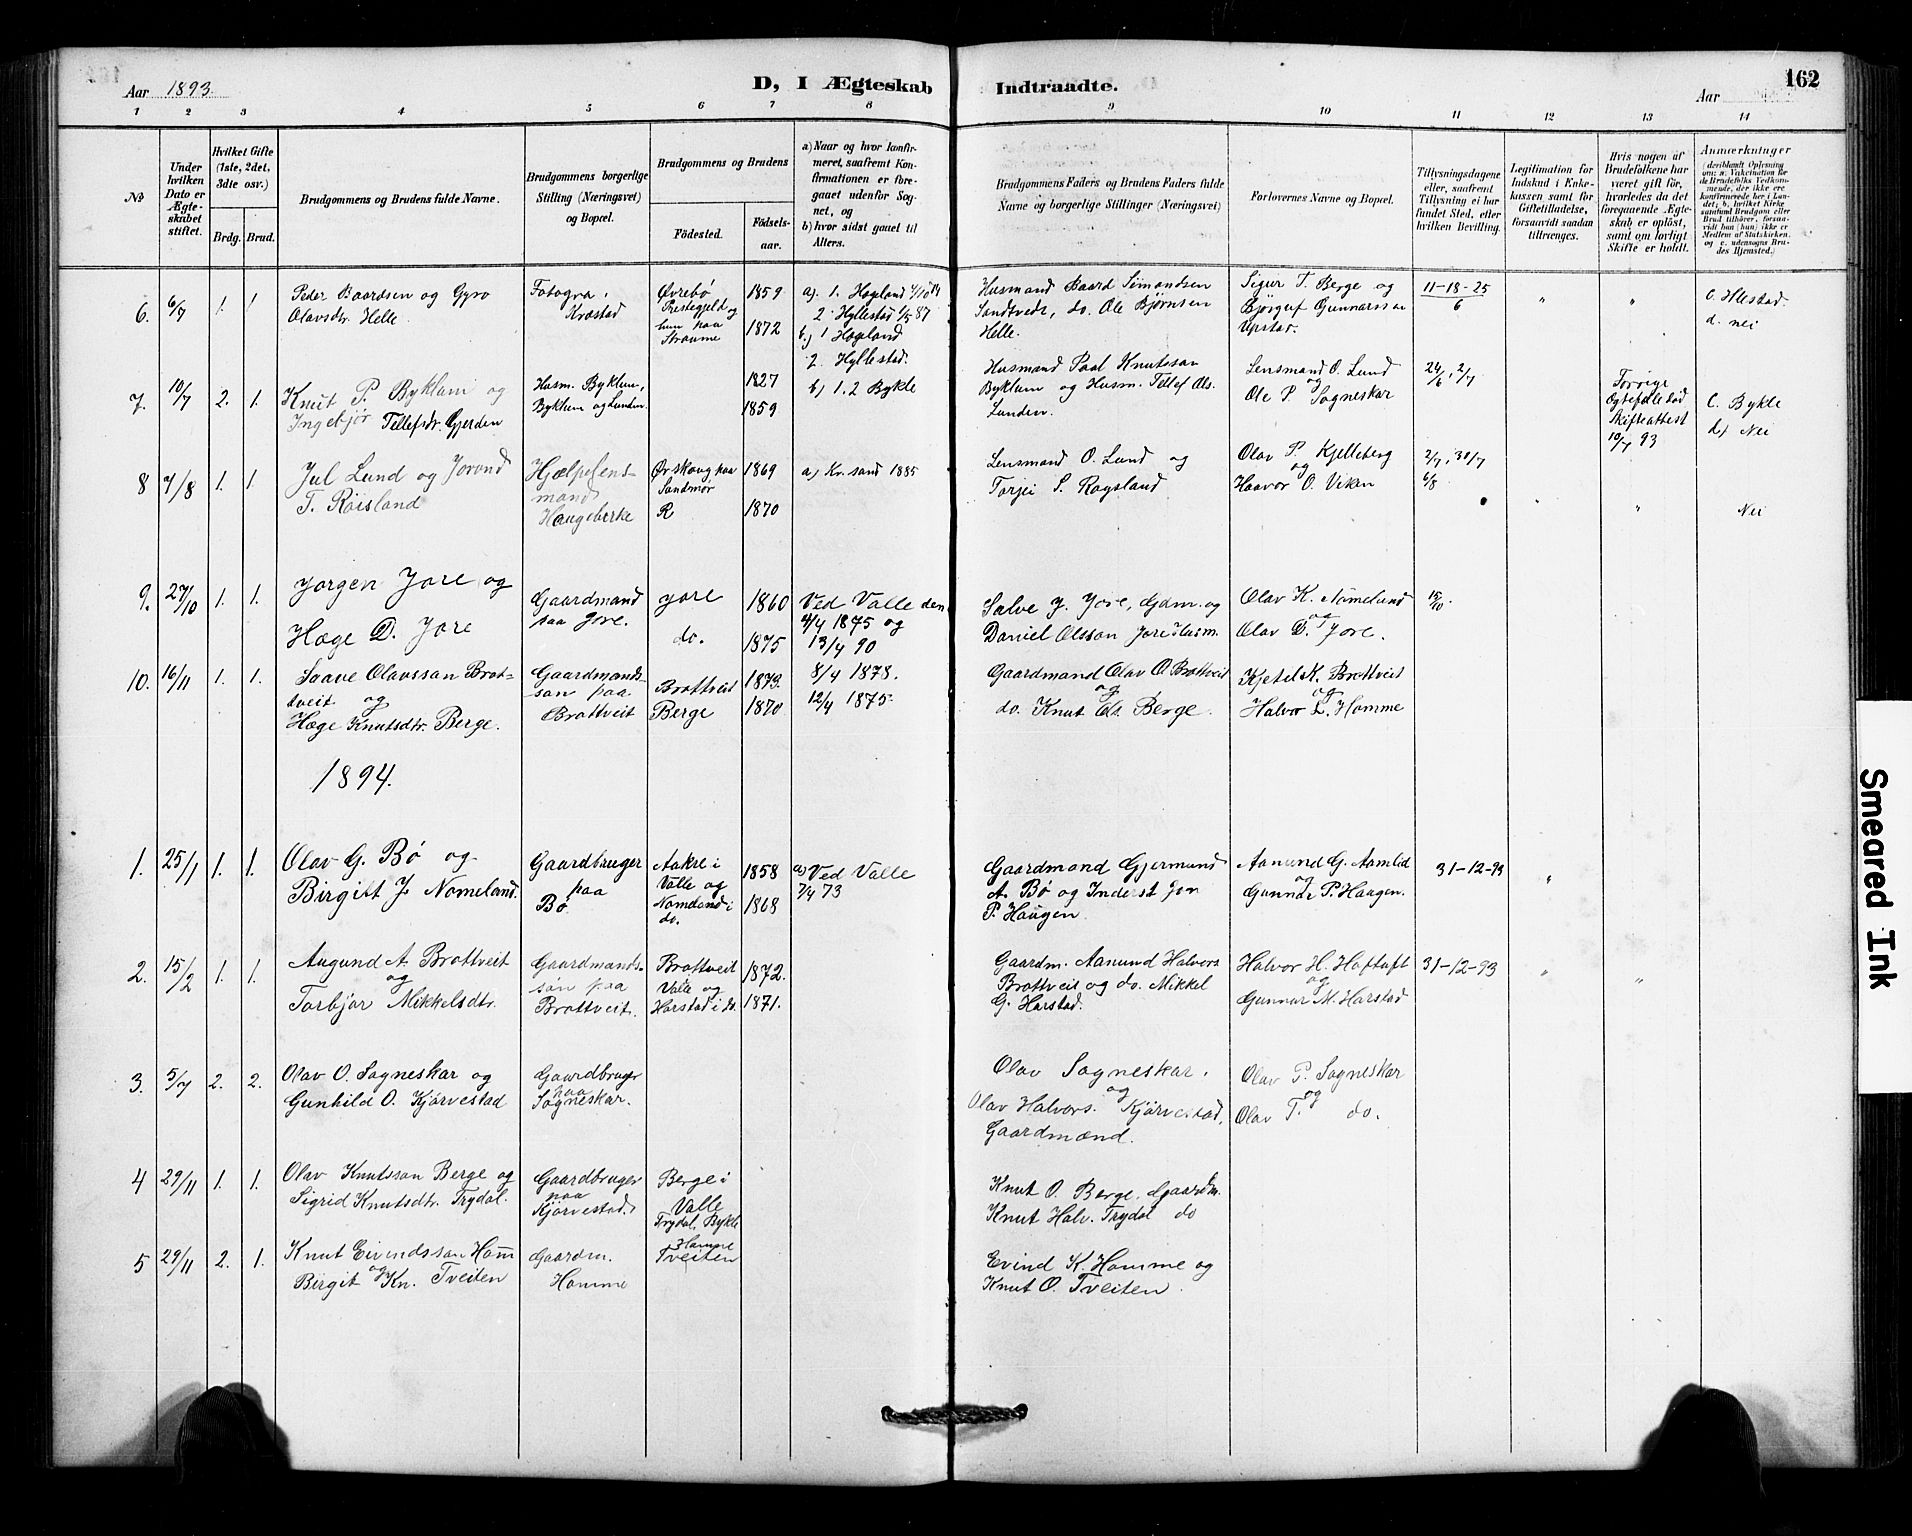 Aar 1893.
D, I Ægteskab Indtraadte.
Aar
162
1 2 3 4 5 6 7 8 9 10 11 12 13 14
No
Under hvilken Dato er Ægteskabet stiftet.
Hvilket Gifte (1ste, 2det, 3die osv.)
Brdg. Brud.
Brudgommens og Brudens fulde Navne.
Brudgommens borgerlige Stilling (Næringsvei) og Bopœl.
Brudgommens og Brudens
Födested. Födsels-aar.
a) Naar og hvor konfirmeret, saafremt Konfirmationen er foregaaet udenfor Sognet, og
b) hvor sidst gaaet til Alters.
Brudgommens Faders og Brudens Faders fulde Navne og borgerlige Stillinger (Næringsvei)
Forlovernes Navne og Bopœl.
Tillysningsdagene eller, saafremt Tillysning ei har fundet Sted, efter hvilken Bevilling.
Legitimation for Indskud i Enkekassen samt for Giftetilladelse, forsaavidt saadan tiltrænges.
Hvis nogen af Brudefolkene har været gift för, hvorledes da det foregaaende Ægteskab er oplöst, samt om lovligt Skifte er holdt.
Anmærkninger
6. 6/7 1. 1.
Peder Baardsen og Gyro
Olavsdtr. Helle.
Fotogra.
Kvæstad
Øvrebø
Prestegjeld og
hun paa
Straume
1859
1872
a). 1. Hægeland 1/10 74
2 Hyllestad 6/5 87
b.) 1 Hægeland
2. Hyllestad.
Husmand Baard Simondsen
Sandtvedt, do. Ole Bjørnsen
Helle.
Sigur T. Berge og
Bjørguf Gunnarsson
Upstad.
11-18-25
6
"
"
C. Hlestad.
d. nei
7. 10/7 2. 1.
Knut P. Byklum og
Ingebjør Tellefsdr. Gjerden
Husm. Byklum,
Byklum og Lunden.
1827
1859
b) 1. 2 Bykle
Husmand Paal Knutsson
Byklum og Husm. Tellef Ols.
Lunden.
Lensmand O. Lund
og
Ole P. Sogneskar
24/6, 2/7
Forrige
Egtefelle død
Skifteattest
10/7 93
C. Bykle
d) Nei
8 7/8 1. 1.
Jul Lund og Jorond
T. Röisland
Hjælpelens-
mand
Haugebirke
Ørskoug paa
Sandmør
R
1869
1870
a) Kr.sand 1885
Lensmand O. Lund og
Torjei S. Røysland
Olav P. Kjelleberg
og
Haavor O. Viken
2/7, 30/7
6/8
"
"
Nei
9. 27/10 1. 1.
Jorgen Jore og
Hæge D. Jore
Gaardmand
paa Jore.
Jore
do.
1860
1875
Ved Valle den
4/4 1875 og
13/4 90
Salve J. Jore, Gdm. og
Daniel Olsson Jore Husm.
Olav K. Nomeland
og
Olav D. Jore.
15/10.
10. 16/11 1. 1.
Saave Olavssan Brot-
tveit
og
Hæge Knutsdtr. Berge.
Gaardmands-
søn paa
Brottveit
Brottveit
Berge
1873.
1870
8/4 1878.
12/4 1875.
Gaardmand Olav O Brottveit
og
do. Knut Ols. Berge.
Kjetel K. Brottveit
og
Halvor L. Homme
1894.
1. 25/1 1. 1.
Olav G. Bø og
Birgitt J. Nomeland.
Gaardbruger
paa
Bø
Aakre i
Valle og
Nomeland i
do.
1858
1868
a) Ved Valle
7/4 73
Gaardmand Gjermund
A. Bø og Inderst Jon
P. Haugen.
Aanund G. Aamlid
og
Gunnar P. Haugen.
31-12-93
"
2. 15/2 1. 1.
Augund A. Brottveit
og
Torbjør Mikkelsdtr.
Gaardmands-
søn paa
Brottveit.
Brottveit
Valle og
Harstad i do.
1872.
1871.
Gaardm. Aanund Halvors
Brottveit og do. Mikkel
G. Harstad.
Halvor H. Hoftuft
og
Gunnar M. Harstad
31-12-93
"
"
3. 5/7 2. 2.
Olav O. Sogneskar og
Gunhild O. Kjørvestad
Gaardbruger
paa
Sogneskar.
Olav Sogneskar.
og
Olav Halvors. Kjørvestad,
Gaardmænd.
Olav P. Sogneskar
og
Olav T. do.
4 29/11 1. 1.
Olav Knutsson Berge og
Sigrid Knutsdtr. Trydal.
Gaardbruger
paa
Kjørvestad.
Berge i
Valle
Trydal, Bykle
Knut O. Berge, Gaardm.
Knut Halv. Trydal do
5 29/11 2. 1.
Knut Eivindsson Hom̄
og
Birgit Kn. Tveiten
Gaardm.
Homme
Homme
Tveiten
Evind K. Homme og
Knut O. Tveiten.
Smeared Ink